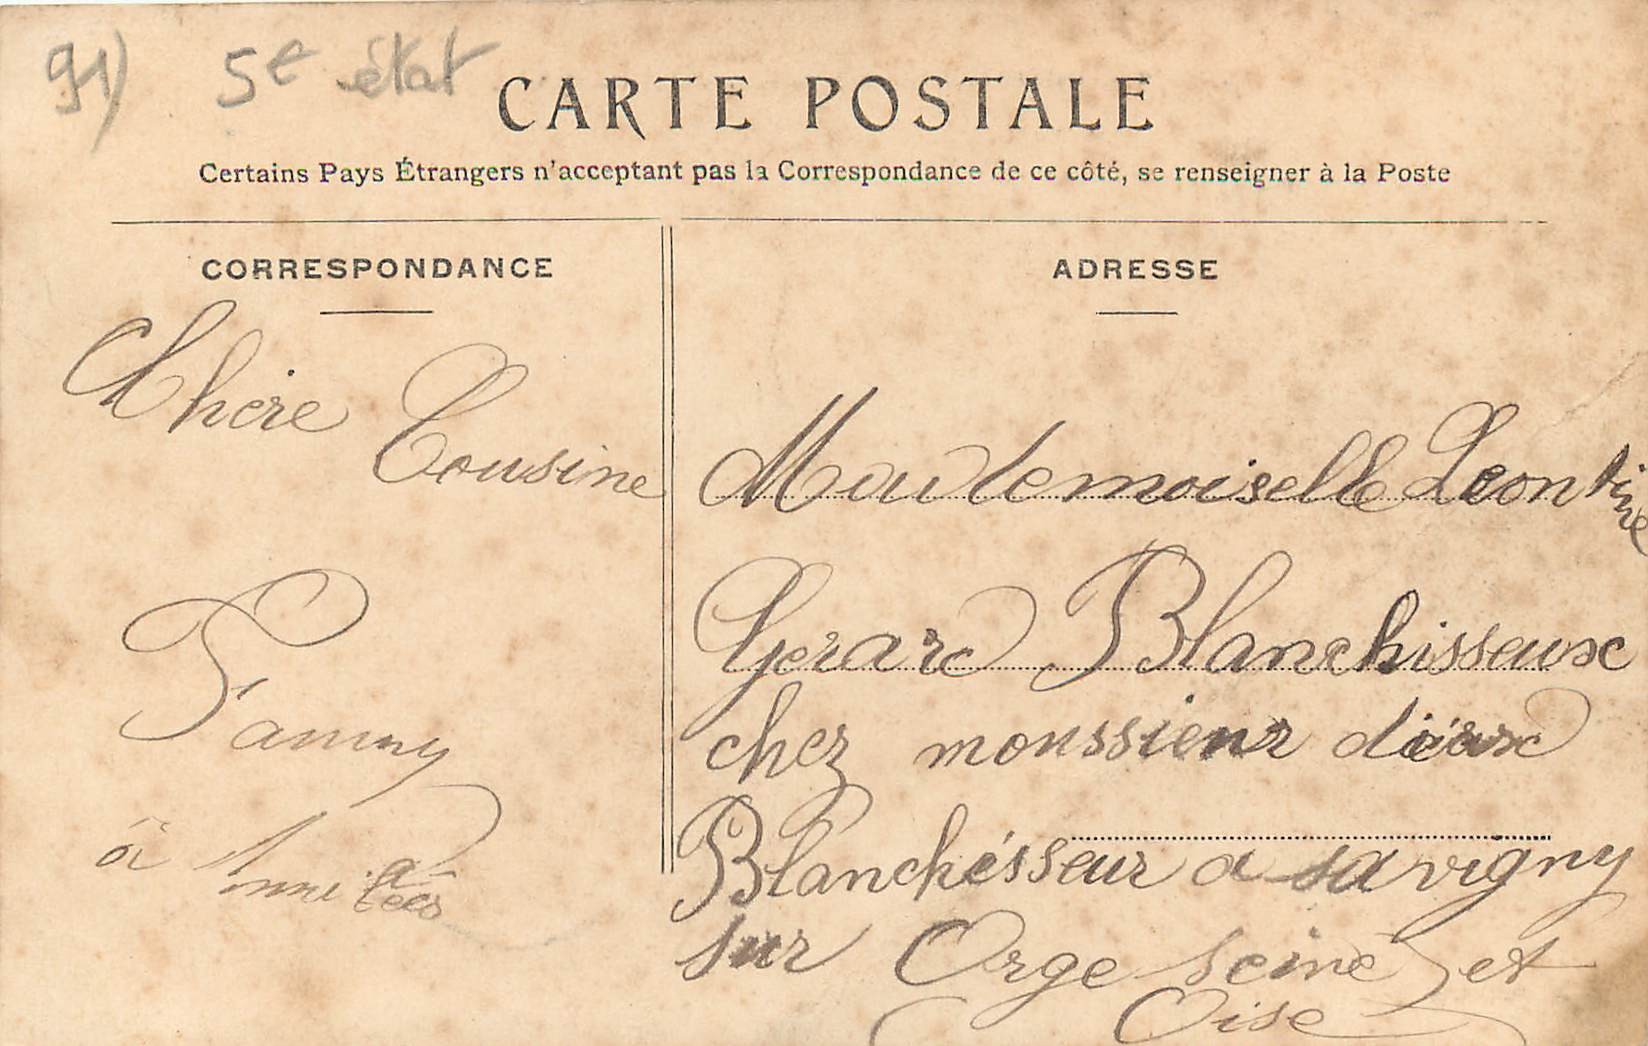 91) 5e état
CARTE POSTALE
Certains Pays Étrangers n'acceptant pas la Correspondance de ce côté, se renseigner à la Poste
CORRESPONDANCE
Chère Cousine
Fanny
à Amitées
ADRESSE
Mademoiselle Leontine
Gerard Blanchisseuse
chez moussieur
Blanchésseur a savigny
sur Orge seine et
Oise